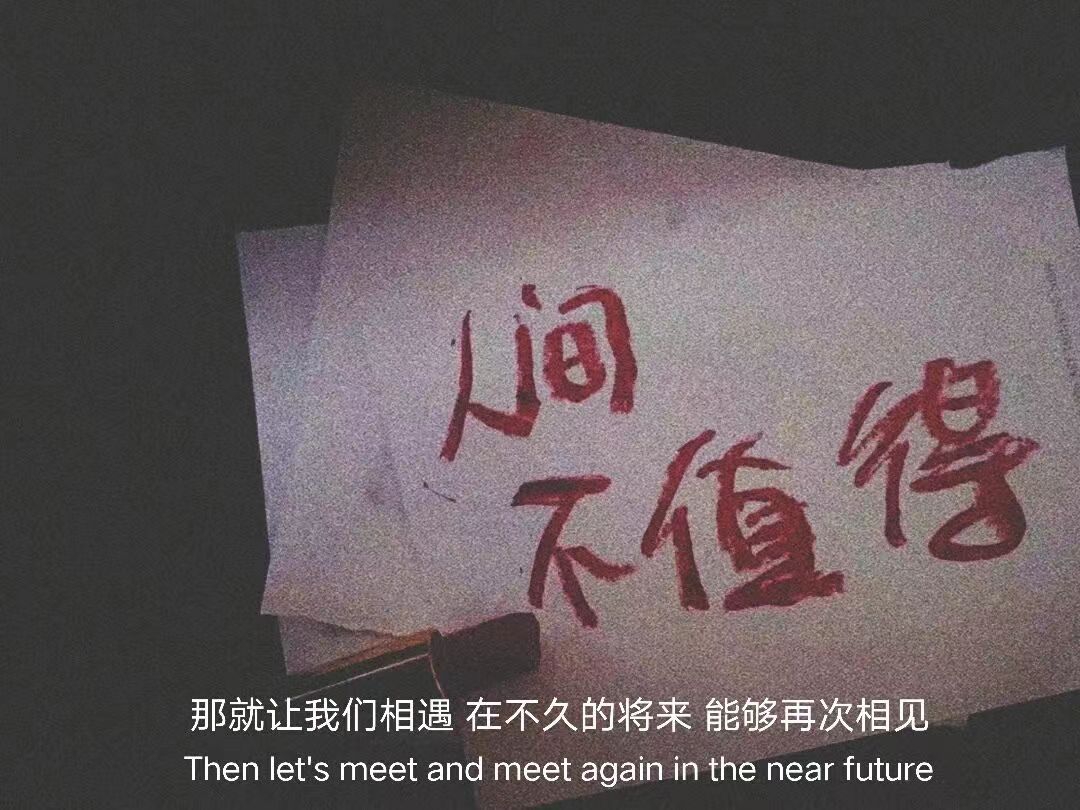 人间
不值得
那就让我们相遇 在不久的将来 能够再次相见
Then let's meet and meet again in the near future